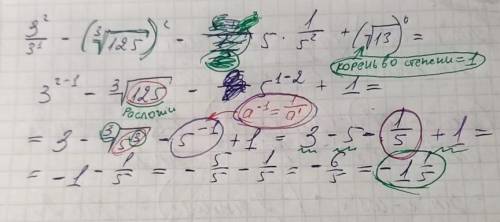 3²/3¹ - (∛125)¹ - 5 · 1/5² + (√13)⁰ =
корень во степени = 1
3²⁻¹ - ∛125 - 5¹⁻² + 1 =
Разложи
a⁻¹ = 1/a¹
= 3 - ∛5³ - 5⁻¹ + 1 = 3 - 5 - 1/5 + 1 =
= -1 - 1/5 = - 5/5 - 1/5 = - 6/5 = -1 1/5